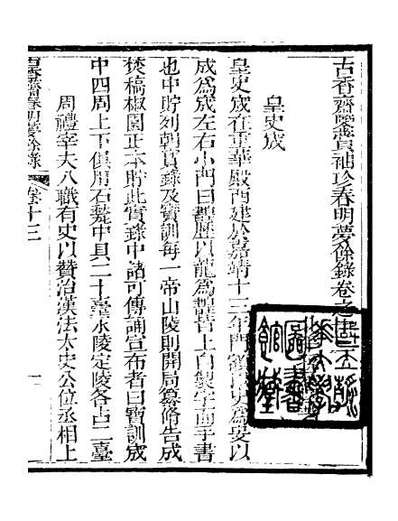 古香齋鑒賞袖珍春明夢餘錄卷之
皇史宬
皇史宬在重華殿西建於嘉靖十三年門額以史為以
成為宬左右小門曰歷以龍為皆上自製字而手書
也中貯列朝實錄及寶訓每一帝山陵則開局纂修告成
焚稿椒園正本貯此實錄中諸可傳誦宣布者曰寶訓宬
中四周上下俱用石甃中具二十臺永陵定陵各占二臺
周禮宰夫八職有史以贊治漢法太史公位丞相上
古香齋春明夢餘錄 卷十三 一
圖書
館藏